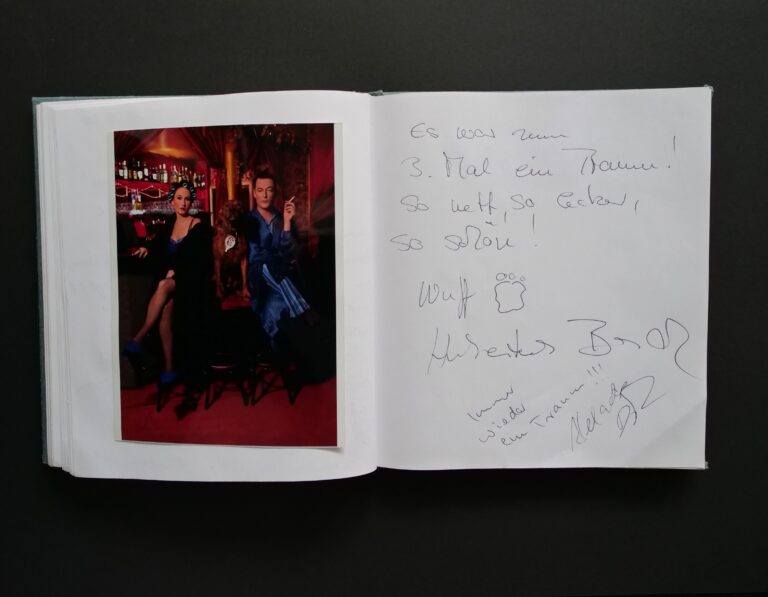 Es war zum
3. Mal ein Traum!
so nett, so lecker,
so schön!
Wuff
Immer
wieder
ein Traum!!!